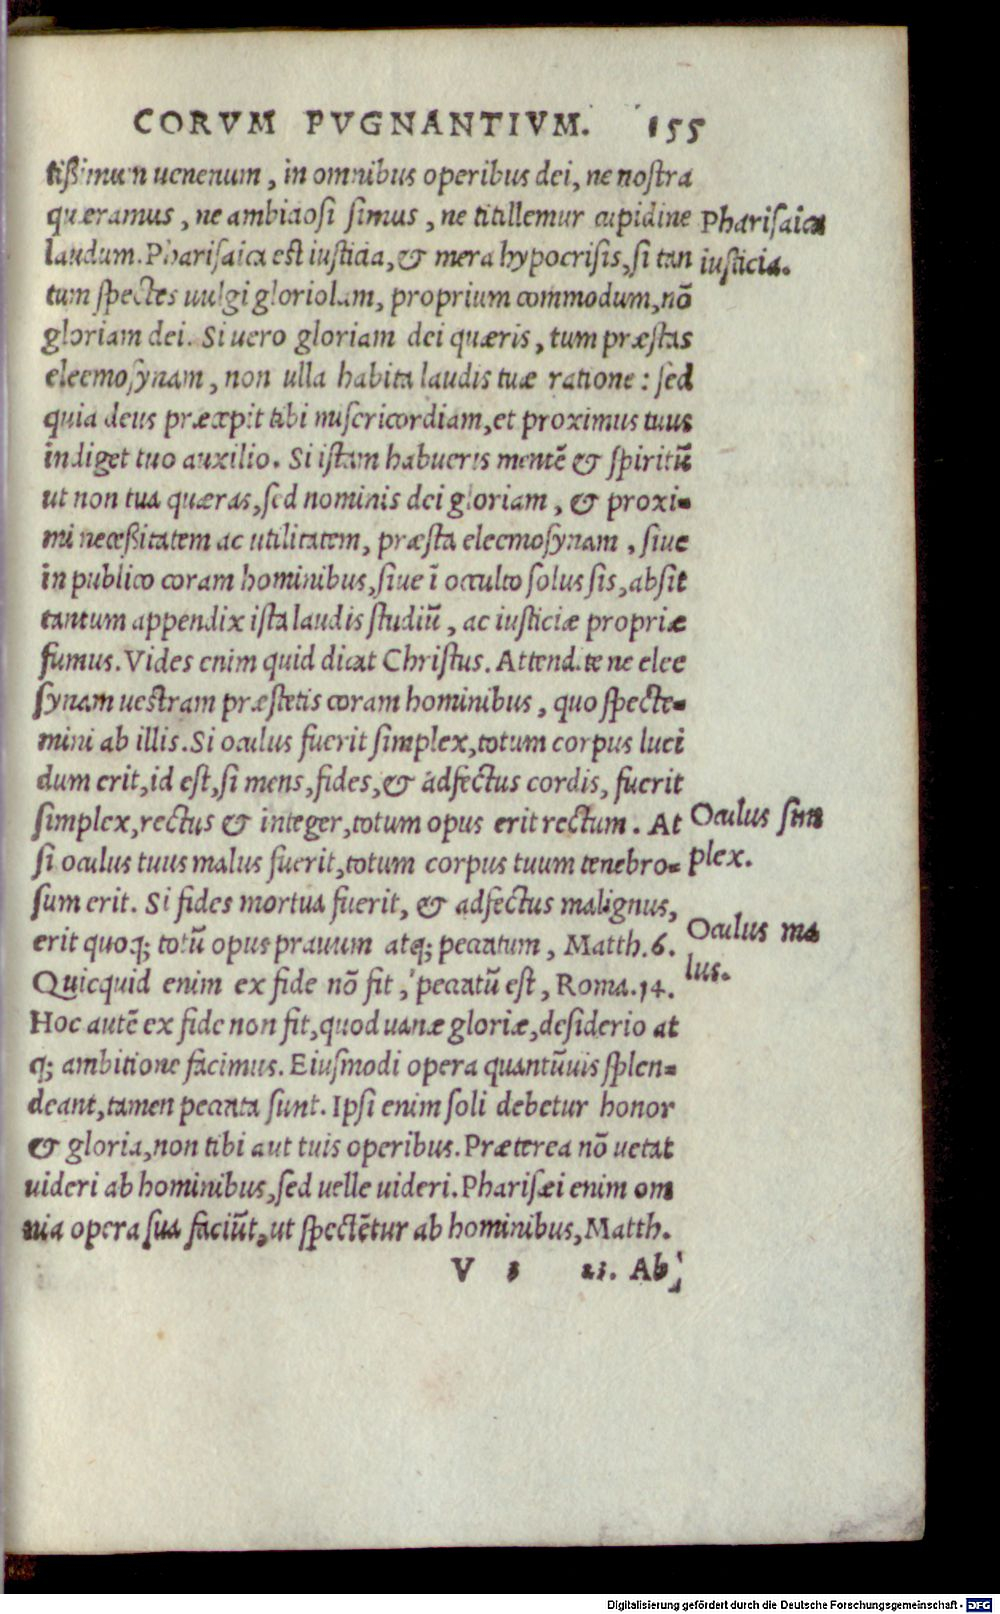 CORVM PVGNANTIVM. 155
tißimum uenenum, in omnibus operibus dei, ne nostra
quæramus, ne ambiciosi simus, ne titillemur cupidine
laudum. Pharisaica est iusticia, & mera hypocrisis, si tan
tum spectes uulgi gloriolam, proprium commodum, nō
gloriam dei. Si uero gloriam dei quæris, tum præstas
eleemosynam, non ulla habita laudis tuæ ratione: sed
quia deus præcepit tibi misericordiam, et proximus tuus
indiget tuo auxilio. Si istam habueris mentē & spiritū
ut non tua quæras, sed nominis dei gloriam, & proxi=
mi neceßitatem ac utilitatem, præsta eleemosynam, siue
in publico coram hominibus, siue ī occulto solus sis, absit
tantum appendix ista laudis studiū, ac iusticiæ propriæ
fumus. Vides enim quid dicat Christus. Attendite ne elee
synam uestram præstetis coram hominibus, quo specte=
mini ab illis. Si oculus fuerit simplex, totum corpus luci
dum erit, id est, si mens, fides, & adfectus cordis, fuerit
simplex, rectus & integer, totum opus erit rectum. At
si oculus tuus malus fuerit, totum corpus tuum tenebro=
sum erit. Si fides mortua fuerit, & adfectus malignus,
erit quoq; totū opus prauum atq; peccatum, Matth. 6.
Quicquid enim ex fide nō fit, peccatū est, Roma. 14.
Hoc autē ex fide non fit, quod uanæ gloriæ, desiderio at
q; ambitione facimus. Eiusmodi opera quantūuis splen=
deant, tamen peccata sunt. Ipsi enim soli debetur honor
& gloria, non tibi aut tuis operibus. Præterea nō uetat
uideri ab hominibus, sed uelle uideri. Pharisæi enim om
nia opera sua faciūt, ut spectētur ab hominibus, Matth.
V 3 23. Ab
Pharisaica
iusticia.
Oculus sim
plex.
Oculus ma
lus.
Digitalisierung gefördert durch die Deutsche Forschungsgemeinschaft - DFG